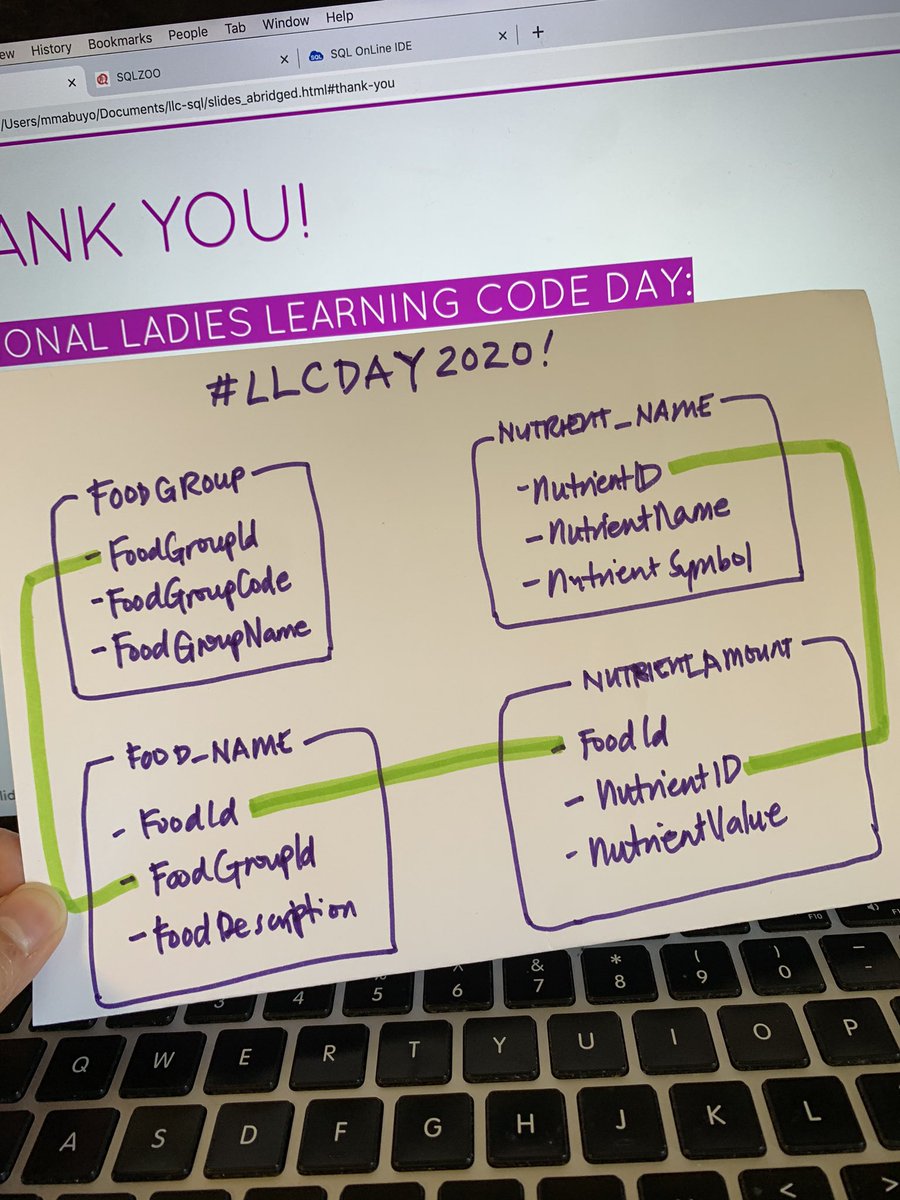 ew History Bookmarks People Tab Window Help
SQLZOO
SQL
SQL OnLine IDE
/Users/mmabuyo/Documents/llc-sql/slides_abridged.html#thank-you
ANK YOU!
IONAL LADIES LEARNING CODE DAY:
#LLCDAY2020!
FOODGROUP
- FoodGroupId
- FoodGroupCode
- FoodGroupName
NUTRIENT_NAME
- NutrientID
- NutrientName
- NutrientSymbol
FOOD_NAME
- FoodId
- FoodGroupId
- FoodDescription
NUTRIENT_AMOUNT
- FoodId
- NutrientID
- NutrientValue
lid
F10
3 4 5 ^ 6 & 7 * 8 ( 9 ) 0 -
Q W E R T Y U I O P
A S D F G H J K L
< >